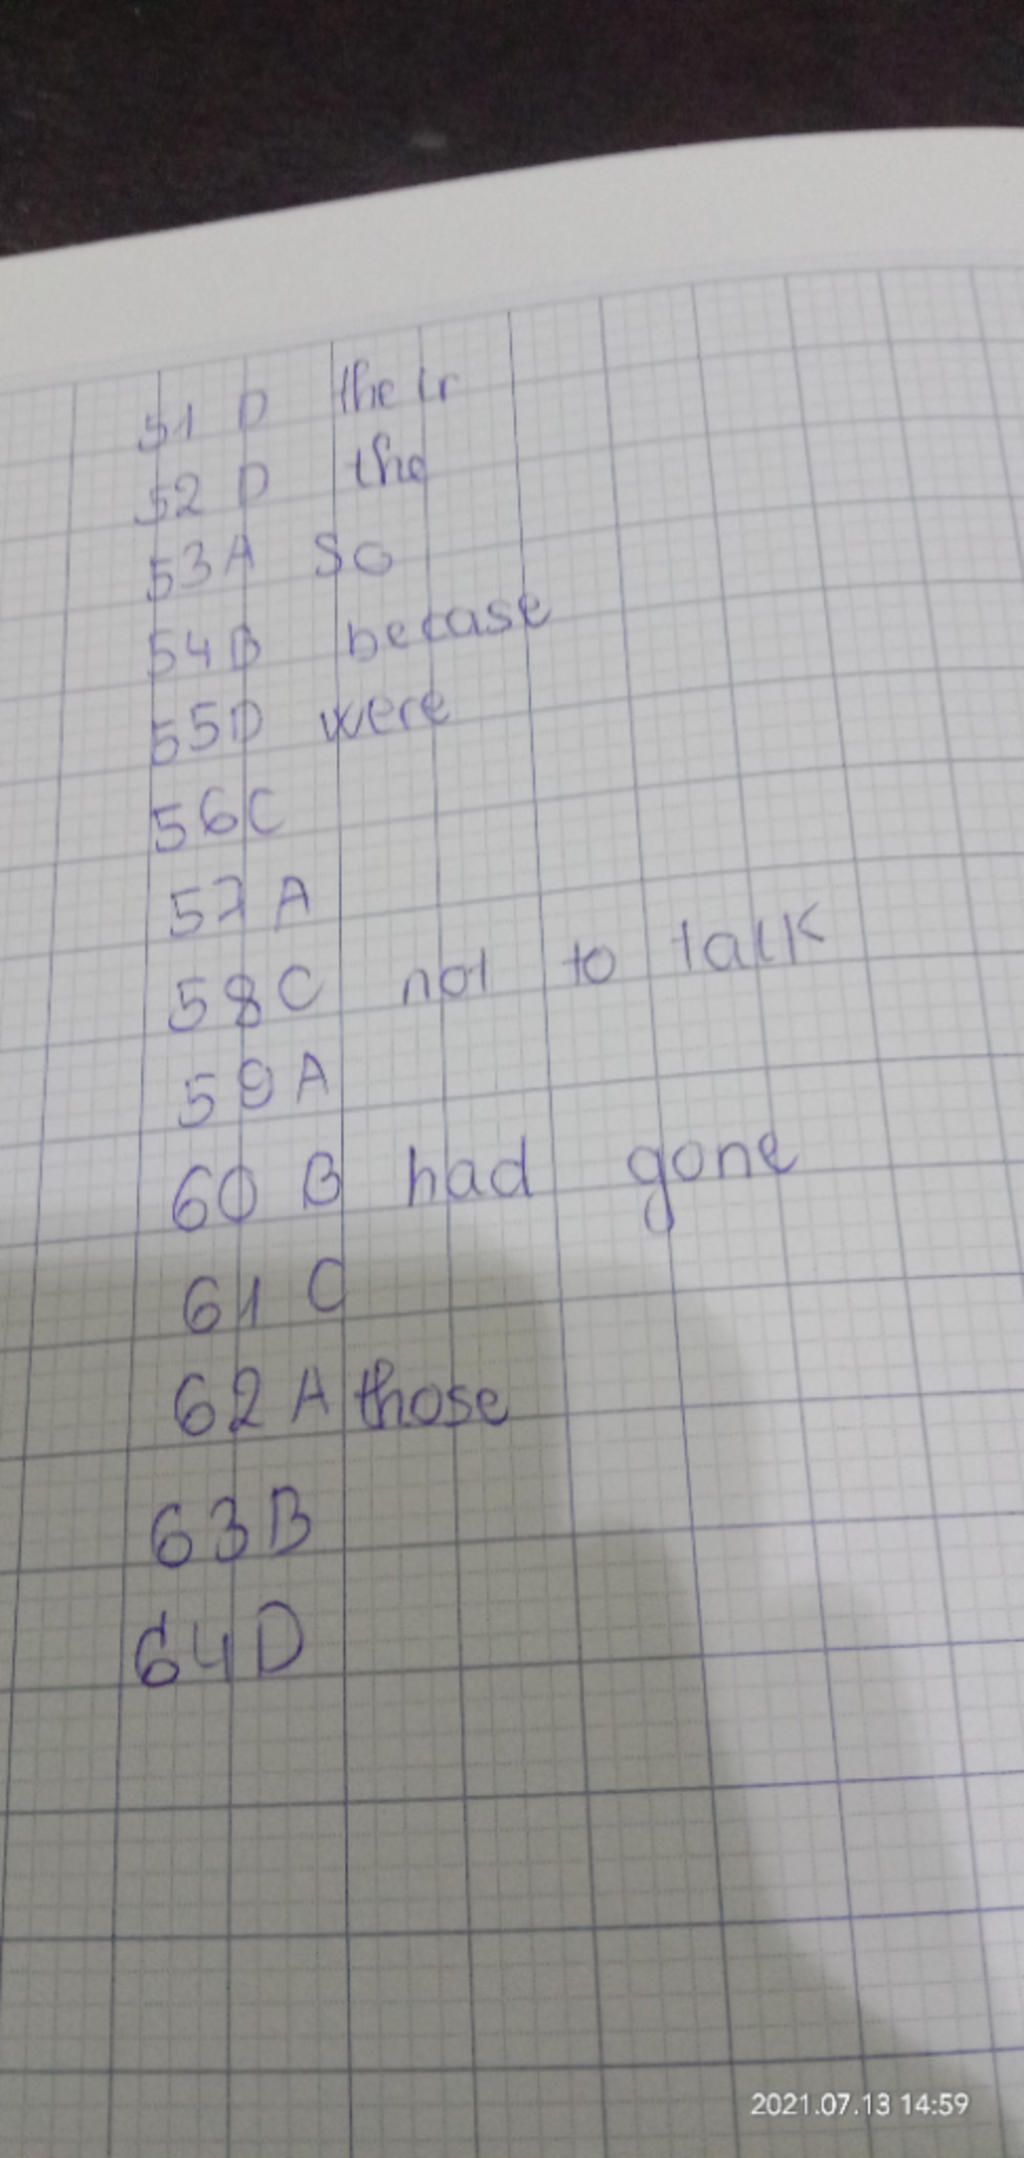 51 D their
52 D the
53 A so
54 B becase
55 D were
56 C
57 A
58 C not to talk
59 A
60 B had gone
61 C
62 A those
63 B
64 D
2021.07.13 14:59